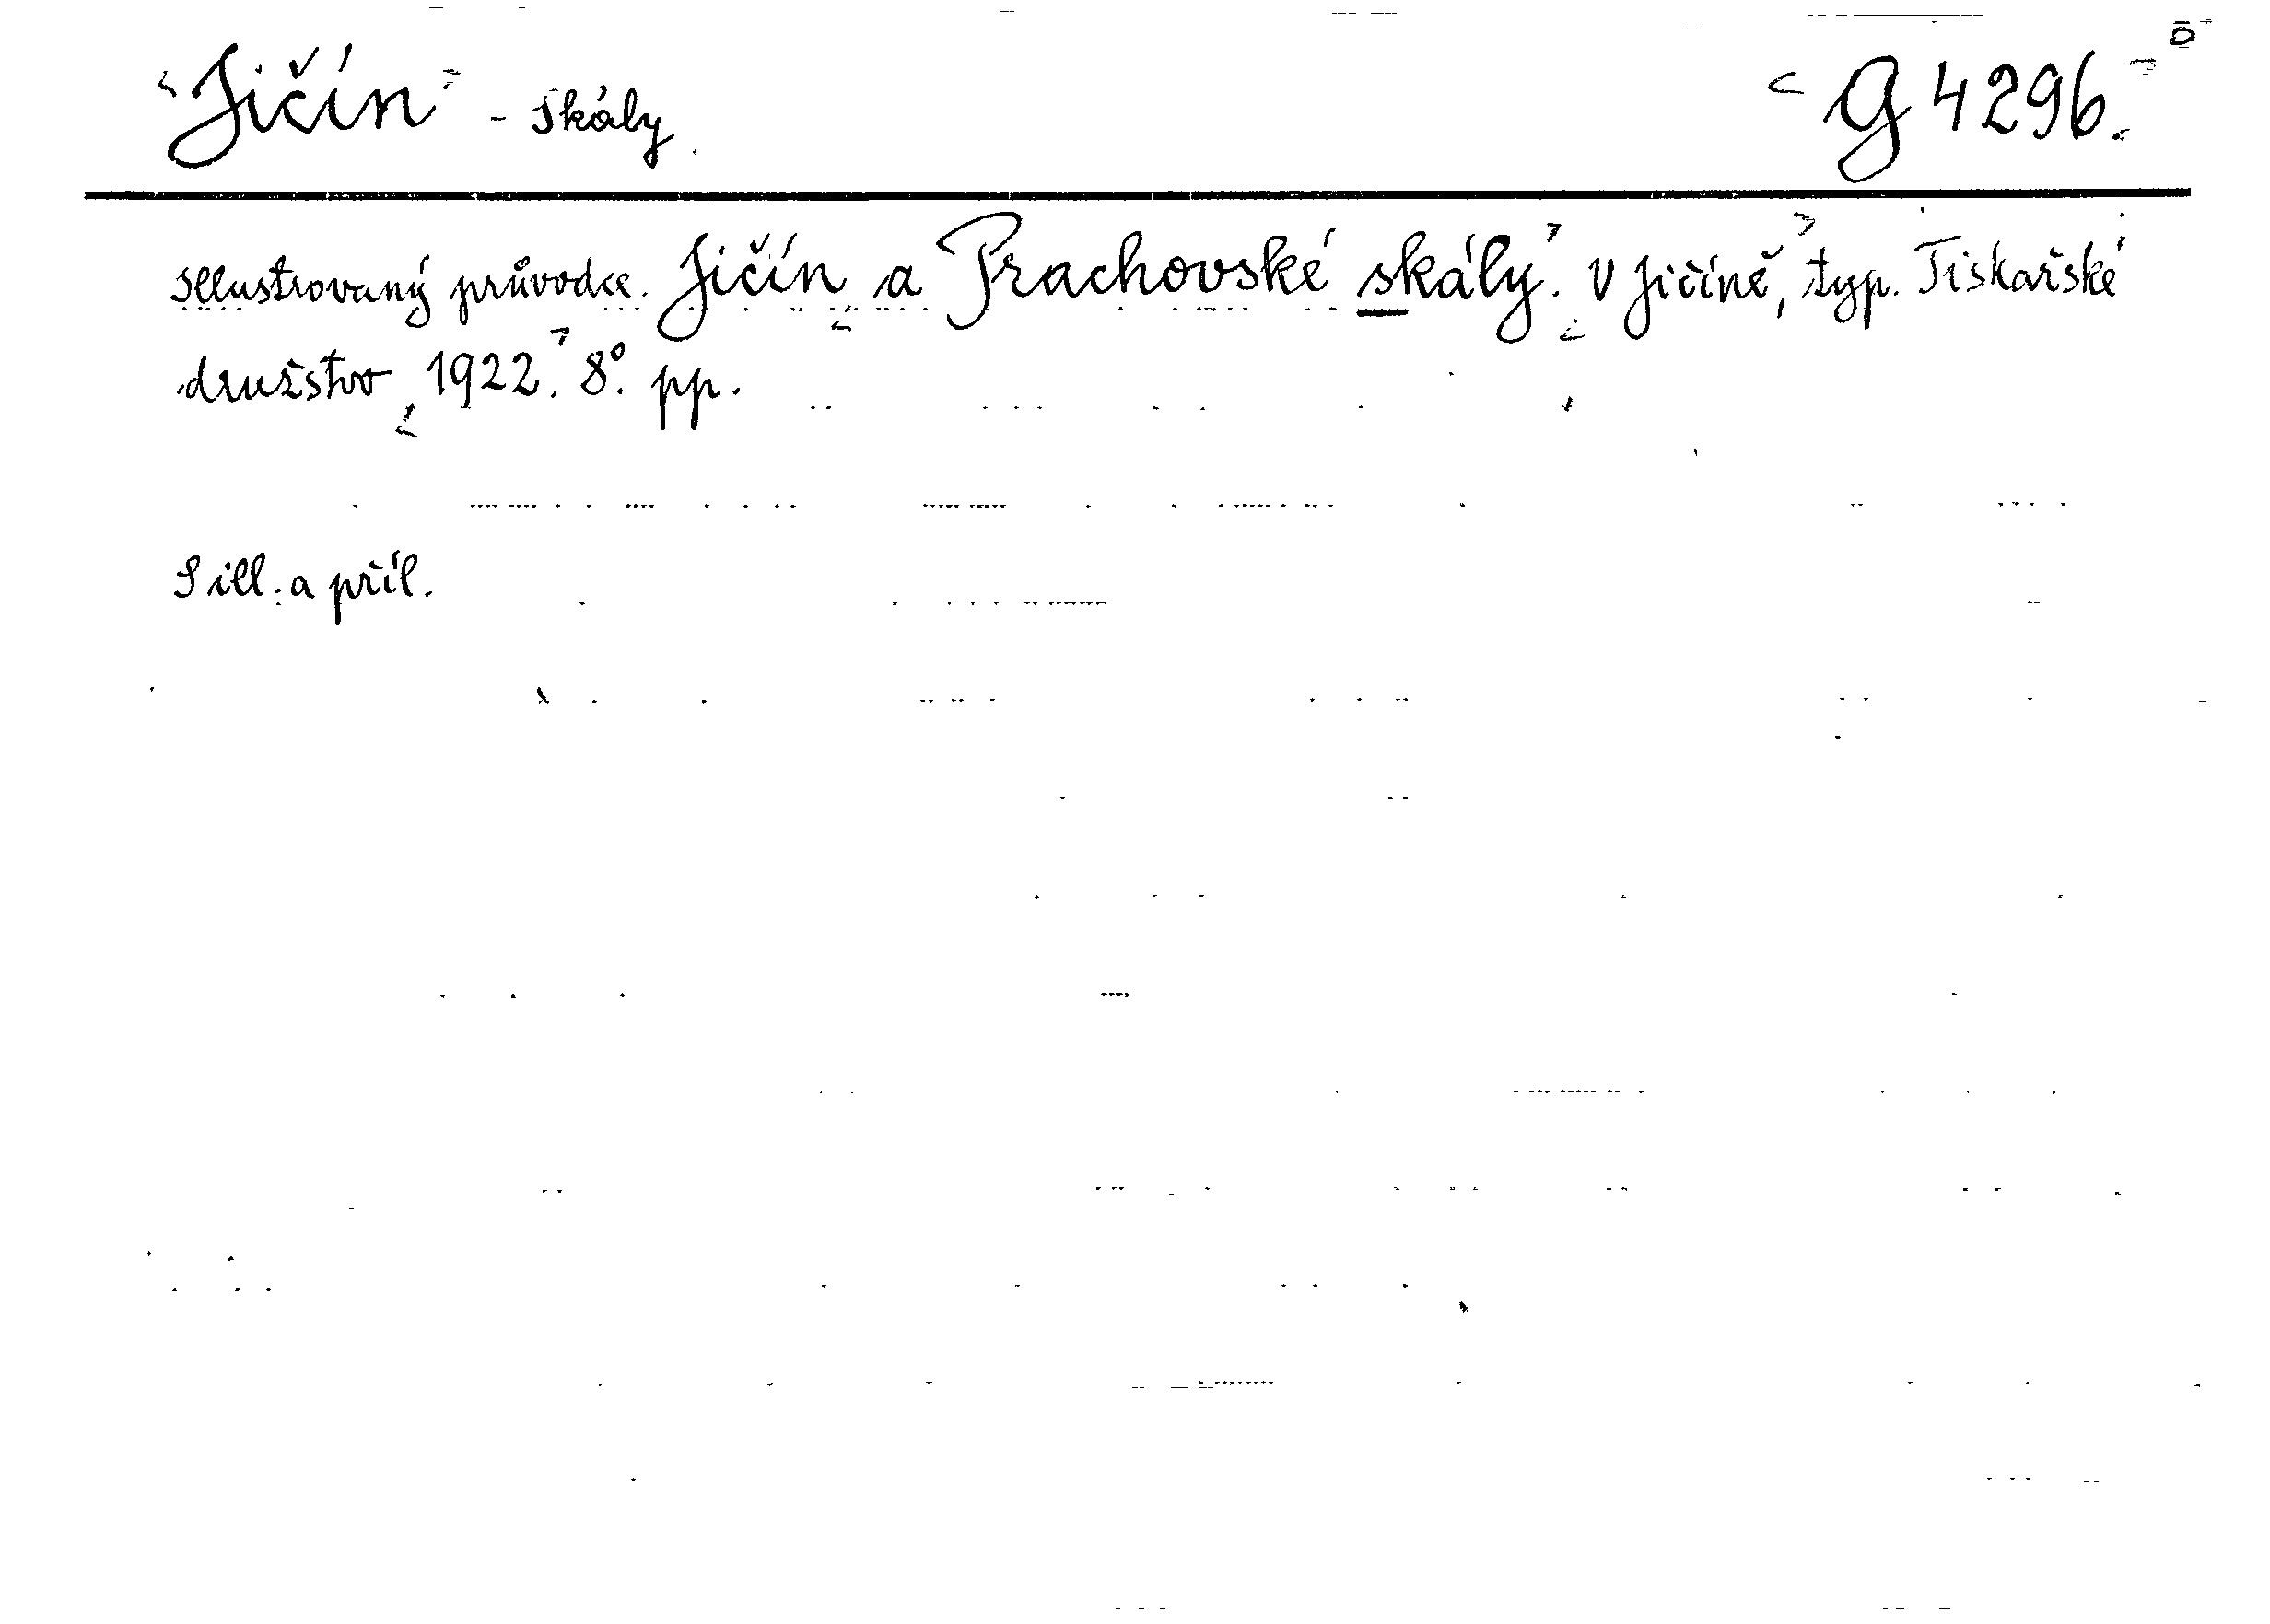 Jičín - Skály. G 4296.
Illustrovaný průvodce. Jičín a Prachovské skály. V Jičíně, typ. Tiskařské
družstvo 1922. 8°. pp.
S ill. a příl.